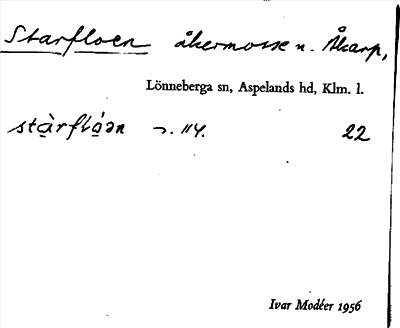 Starfloen åkermosse n. Åkarp,
Lönneberga sn, Aspelands hd, Klm. l.
stàrflóən 114. 22
Ivar Modéer 1956